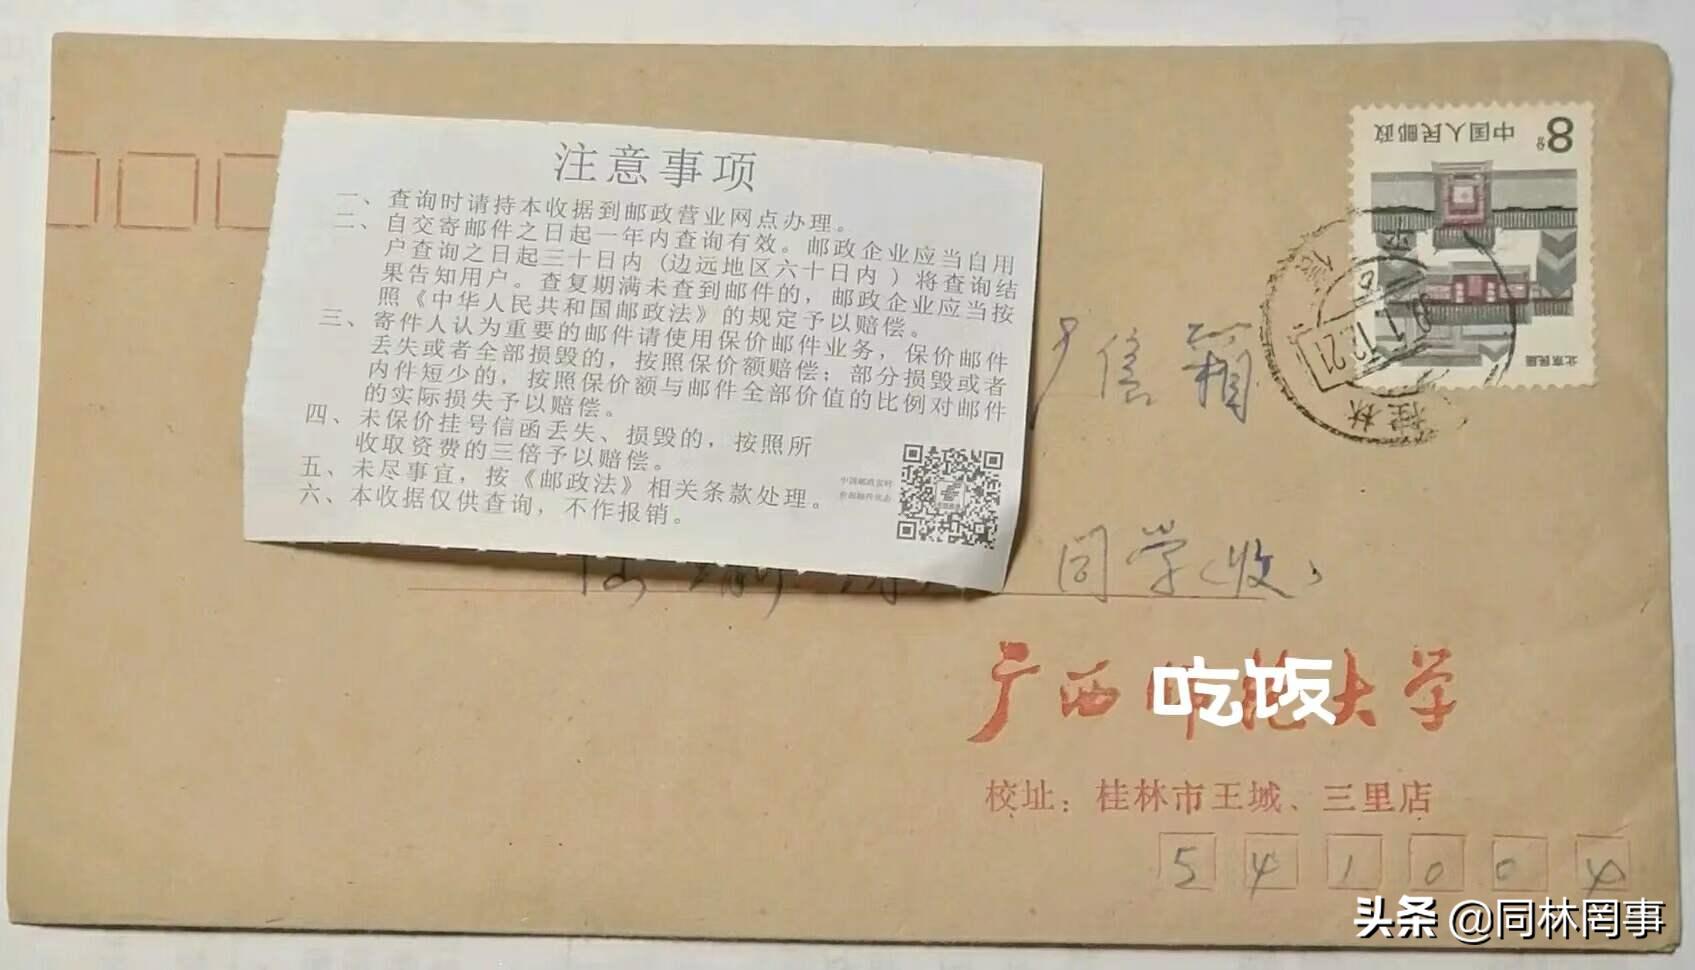 注意事项
一、查询时请持本收据到邮政营业网点办理。
二、自交寄邮件之日起一年内查询有效。邮政企业应当自用
户查询之日起三十日内（边远地区六十日内）将查询结
果告知用户。查复期满未查到邮件的，邮政企业应当按
照《中华人民共和国邮政法》的规定予以赔偿。
三、寄件人认为重要的邮件请使用保价邮件业务，保价邮件
丢失或者全部损毁的，按照保价额赔偿；部分损毁或者
内件短少的，按照保价额与邮件全部价值的比例对邮件
的实际损失予以赔偿。
四、未保价挂号信函丢失、损毁的，按照所
收取资费的三倍予以赔偿。
五、未尽事宜，按《邮政法》相关条款处理。
六、本收据仅供查询，不作报销。
8分
中国人民邮政
北京民居
桂林
信箱
同学（收）
广西师范大学
吃饭
校址：桂林市王城、三里店
541004
头条 @同林罔事